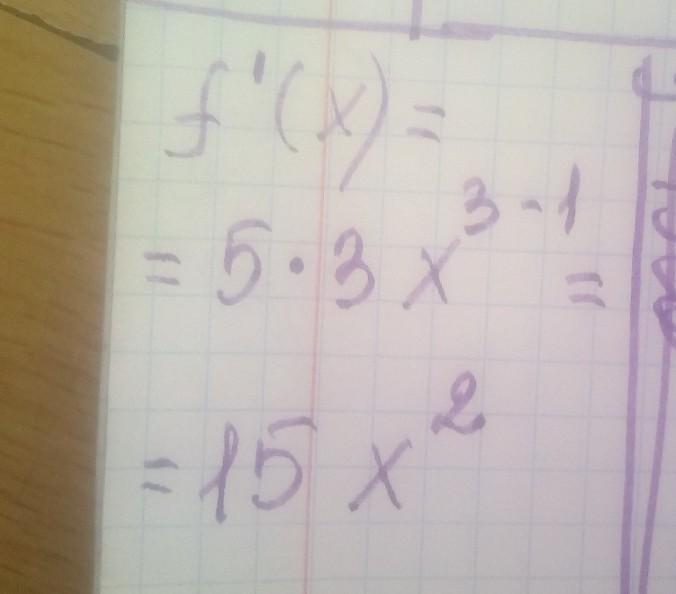 f'(x) =
= 5 · 3 x³⁻¹ =
= 15 x²